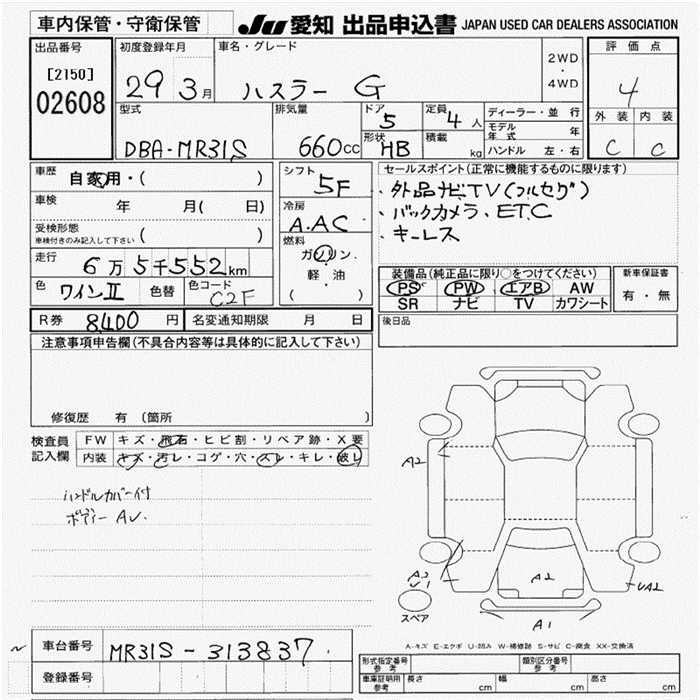 車内保管・守衛保管
JU 愛知 出品申込書 JAPAN USED CAR DEALERS ASSOCIATION
出品番号
[2150]
02608
初度登録年月
29 3月
車名・グレード
ハスラー G
2WD
・
4WD
評価点
4
外装 内装
C C
型式
DBA-MR31S
排気量
660cc
ドア
5
形状
HB
定員
4人
積載
kg
ディーラー・並行
モデル年式 年
ハンドル 左・右
車歴
自家用・( )
車検
年 月( 日)
受検形態
車検付きのみ記入して下さい ( )
走行
6万5千552km
色
ワインⅡ
色替
色コード
C2F
シフト
5F
冷房
A.AC
燃料
ガソリン
軽・油
( )
セールスポイント(正常に機能するものに限ります)
・外品ナビTV(フルセグ)
・バックカメラ、ETC
・キーレス
装備品(純正品に限り○をつけてください)
PS PW エアB AW
SR ナビ TV カワシート
新車保証書
有・無
R券 8,400 円
名変通知期限 月 日
後日品
注意事項申告欄(不具合内容等は具体的に記入して下さい)
修復歴 有 (箇所 )
検査員
記入欄
FW キズ・飛石・ヒビ割・リペア跡・X要
内装 キズ・汚レ・コゲ・穴・スレ・キレ・破レ
ハンドルカバー付
ボディー AU.
A2
A2
U1
スペア
A2
UA2
A1
A-キズ E-エクボ U-凹み W-補修跡 S-サビ C-腐食 XX-交換済
車台番号
MR31S-313837
登録番号
形式指定番号
参考
類別区分番号
参考
車庫証明用
参考
長さ cm 幅 cm 高さ cm